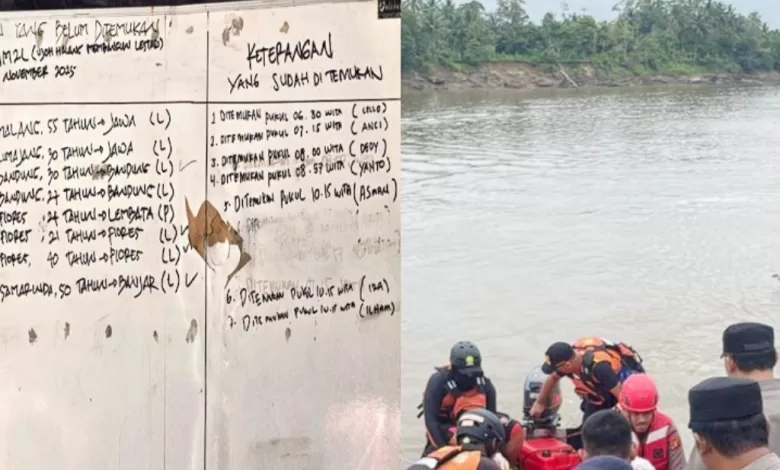 YANG BELUM DITEMUKAN
NOVEMBER 2025
KETERANGAN
YANG SUDAH DITEMUKAN
MALANG, 55 TAHUN → JAWA (L)
LUMAJANG, 30 TAHUN → JAWA (L)
BANDUNG, 30 TAHUN → BANDUNG (L) ✓
BANDUNG, 27 TAHUN → BANDUNG (L)
FLORES, 24 TAHUN → LEMBATA (P)
FLORES, 21 TAHUN → FLORES (L) ✓
FLORES, 40 TAHUN → FLORES (L) ✓
SAMARINDA, 50 TAHUN → BANJAR (L) ✓
1. DITEMUKAN PUKUL 06.30 WITA (LELLO)
2. DITEMUKAN PUKUL 07.15 WITA (ANCI)
3. DITEMUKAN PUKUL 08.00 WITA (DEDY)
4. DITEMUKAN PUKUL 08.57 WITA (YANTO)
5. DITEMUKAN PUKUL 10.15 WITA (ASMAN)
6. DITEMUKAN PUKUL 10.15 WITA (IRA)
7. DITEMUKAN PUKUL 10.15 WITA (ILHAM)